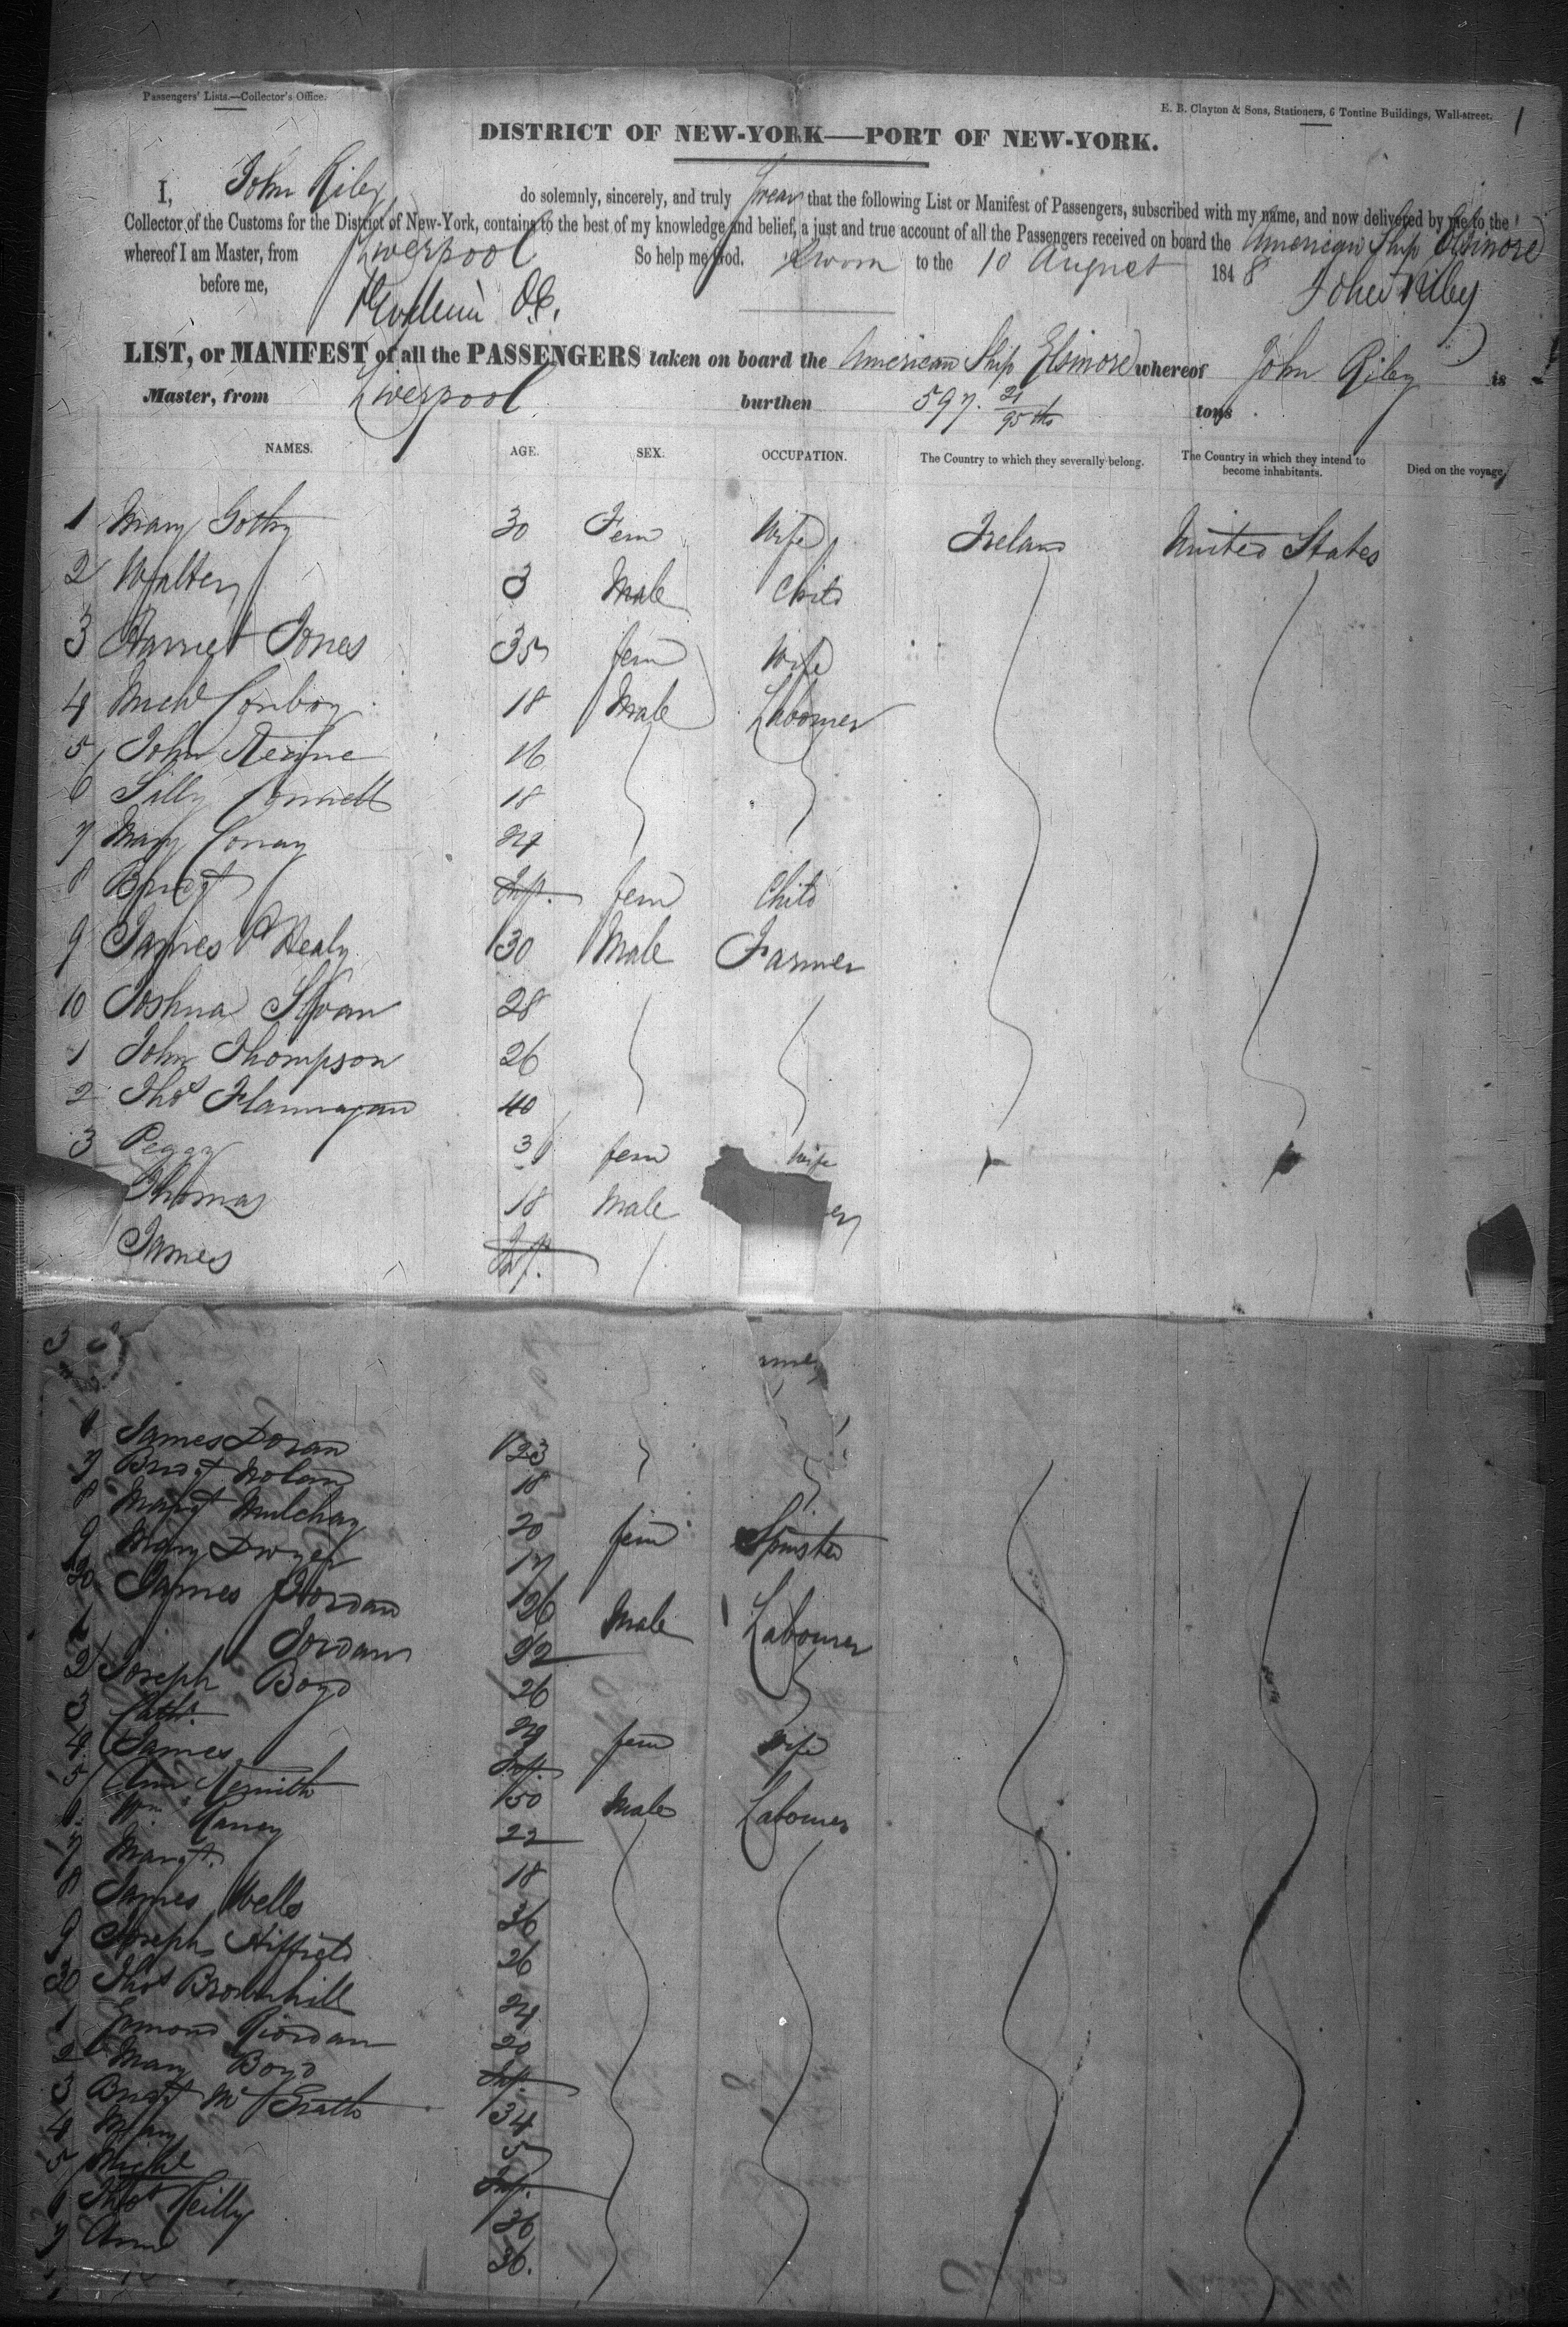 Passengers' Lists.—Collector's Office.
E. B. Clayton & Sons, Stationers, 6 Tontine Buildings, Wall-street. 1
DISTRICT OF NEW-YORK—PORT OF NEW-YORK.
I, John Riley do solemnly, sincerely, and truly swear that the following List or Manifest of Passengers, subscribed with my name, and now delivered by me to the
Collector of the Customs for the District of New-York, contains to the best of my knowledge and belief, a just and true account of all the Passengers received on board the American Ship Elsinore
whereof I am Master, from Liverpool So help me God. Sworn to the 10 August 1848 John Riley
before me,
LIST, or MANIFEST of all the PASSENGERS taken on board the American Ship Elsinore whereof John Riley is
Master, from Liverpool burthen 597. 21/95 ths tons
NAMES. AGE. SEX. OCCUPATION. The Country to which they severally belong. The Country in which they intend to become inhabitants. Died on the voyage.
1 Mary 30 Fem Wife Ireland United States
2 Walter 3 Male Child
3 Harriet Jones 35 fem Wife
4 Michl Conboy 18 Male Labourer
5 John 16
6 18
7 Mary
8 Bridgt Inf. fem Child
9 James Healy 30 Male Farmer
10 Joshua Sloan 28
1 John Thompson 26
2 Thos Flannagan 40
3 Peggy fem wife
Thomas 18 Male
James Inf.
James Doran 23
7 Bridgt Nolan 18
8 Margt Mulchay 20 fem Spinster
9 Mary Dwyer 17
20 James Jordan 26 Male Labourer
1 Jordan 22
2 Joseph Boyd 26
3 Cath. fem wife
4 James Inf.
5 Ann Nesmith 50 Male Labourer
6 Wm 22
7 Margt. 18
8 James Wells 36
9 Joseph 26
30 Thos Brownhill 24
1 Edmond Riordan 20
2 Mary Boyd Inf.
3 Bridgt McGrath 34
4 Mary 5
5 Michl Inf.
6 Thos Reilly 36
7 Ann 36.